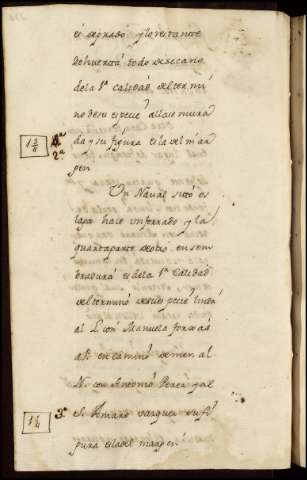 es deprado y lo restante
dehuerta todo desecano
dela 1ª calidad del termi
no desu especie allase mura
1 3/8 1ª da y su figura es la del mar
2ª gen
Un Naval sitto es
hace un ferrado y la
quarta parte de otro en sem
bradura es dela 1ª Calidad
deltermino desu especie linda
al L con Manuela
camino demen al
N. con Antonio Perez y al
1 1/4 3ª S. Amaro Vazquez su fi
gura es la del margen